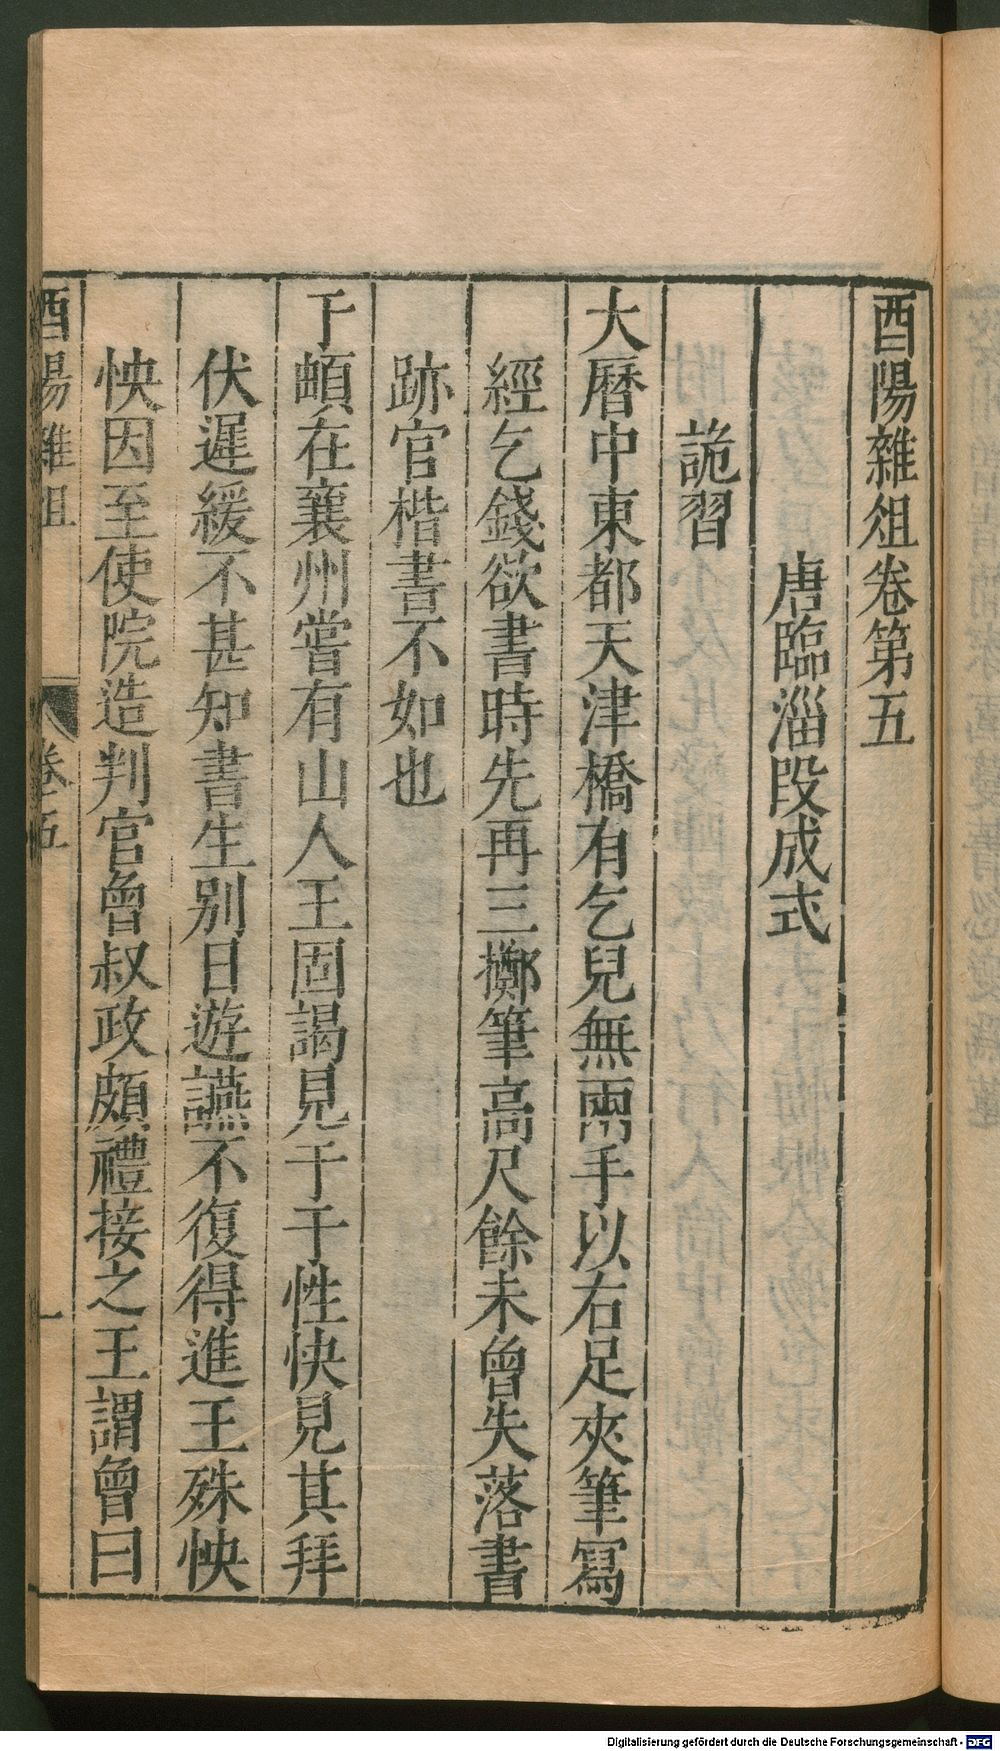 酉陽雜俎卷第五
唐臨淄段成式
詭習
大曆中東都天津橋有乞兒無兩手以右足夾筆寫
經乞錢欲書時先再三擲筆高尺餘未曾失落書
跡官楷書不如也
于頔在襄州嘗有山人王固謁見于于性快見其拜
伏遲緩不甚知書生別日遊讌不復得進王殊怏
怏因至使院造判官曾叔政頗禮接之王謂曾曰
酉陽雜俎 卷五 一
Digitalisierung gefördert durch die Deutsche Forschungsgemeinschaft - DFG